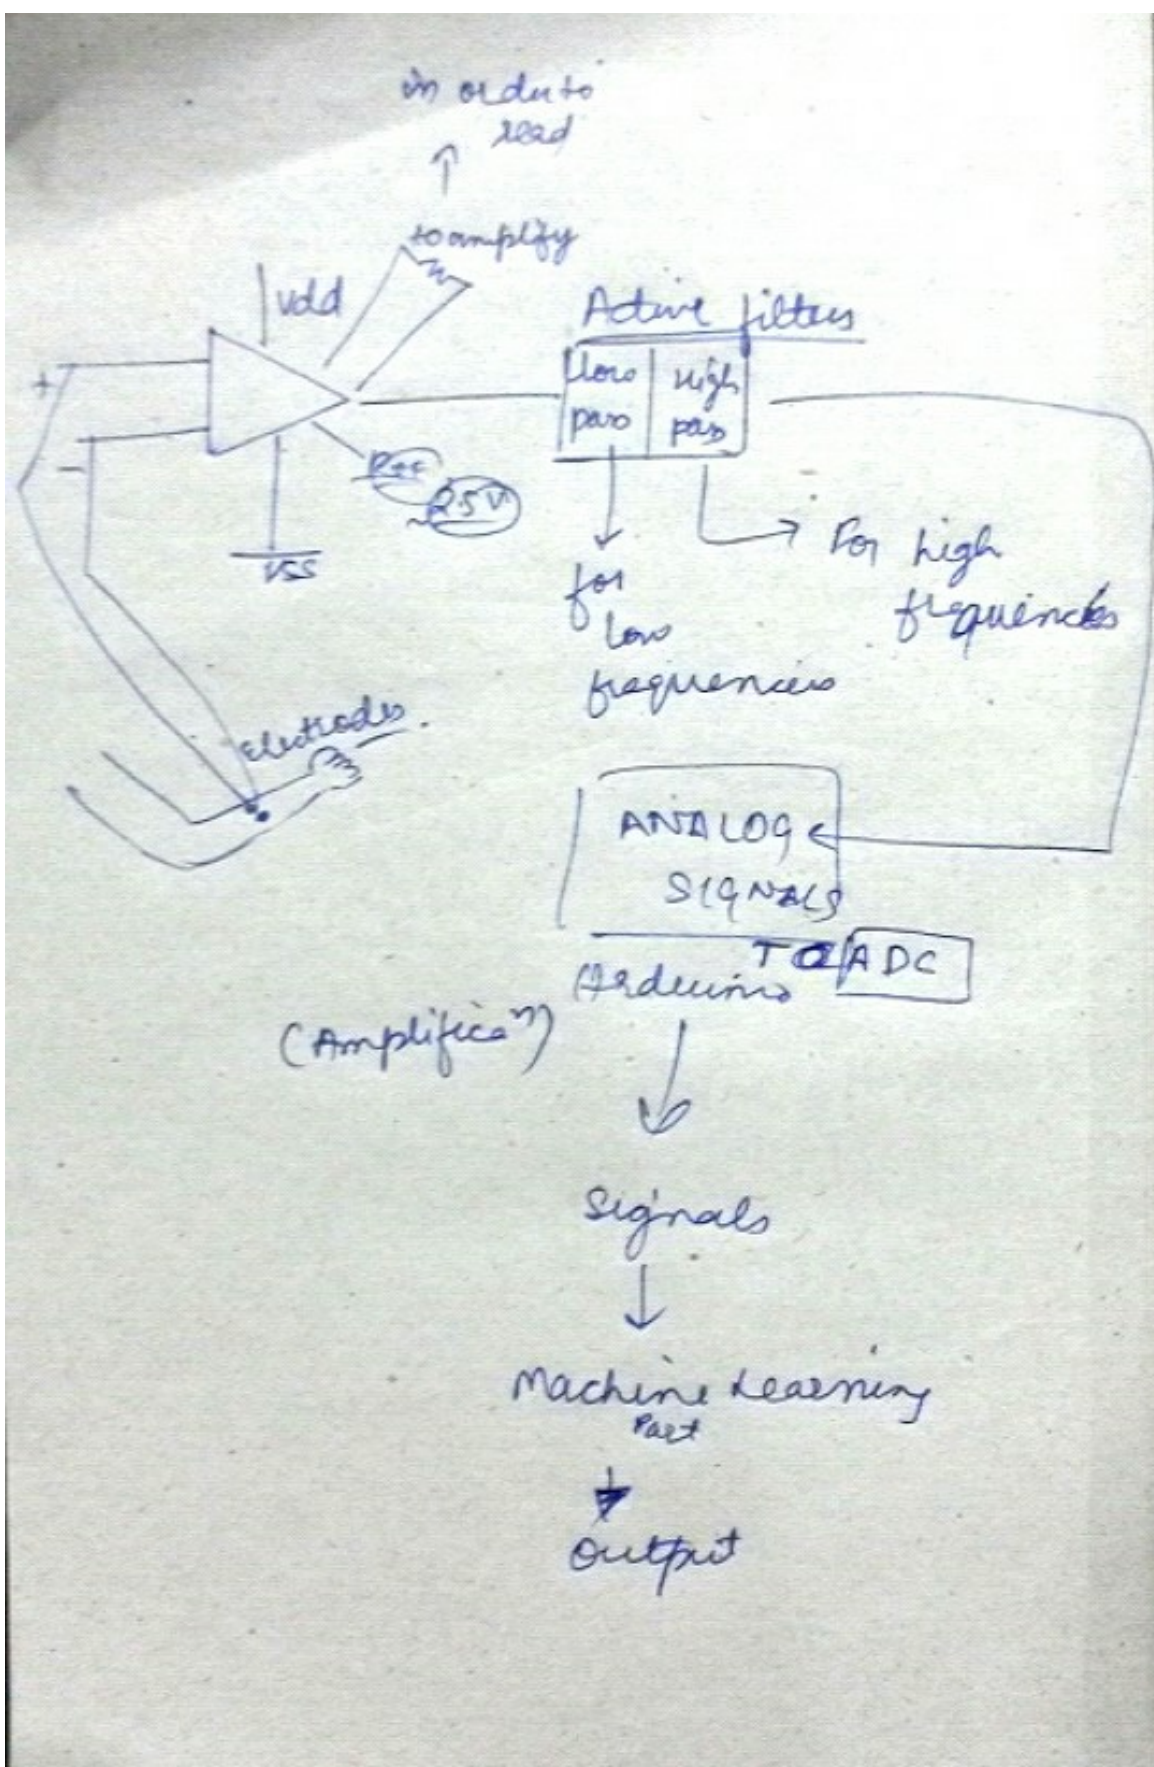 in order to
read
to amplify
Vdd
+
-
Ref
2.5V
VSS
Active filters
Low
pass
High
pass
for
low
frequencies
For high
frequencies
Electrodes.
ANALOG
SIGNALS
TO ADC
Arduino
(Amplificaⁿ)
Signals
Machine Learning
Part
Output